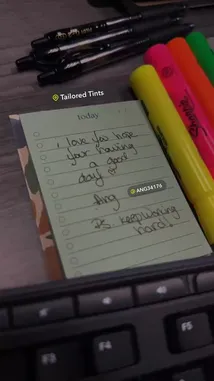 Tailored Tints
today
I love you hope
your having
a good
day
Ang
ANG34176
PS keep working
hard!
Sharpie
F3
F4
F5